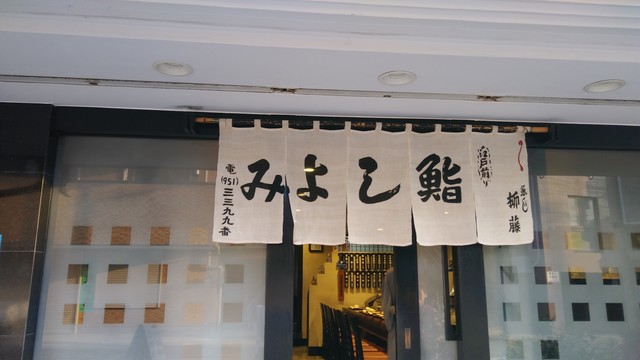 電(951)三三九九番
みよし鮨
江戸前り
柳藤